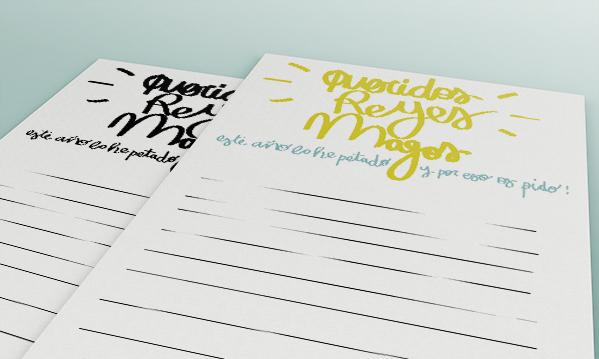 Queridos
Reyes
Magos
este año lo he petado y por eso os pido!
este año lo he petado